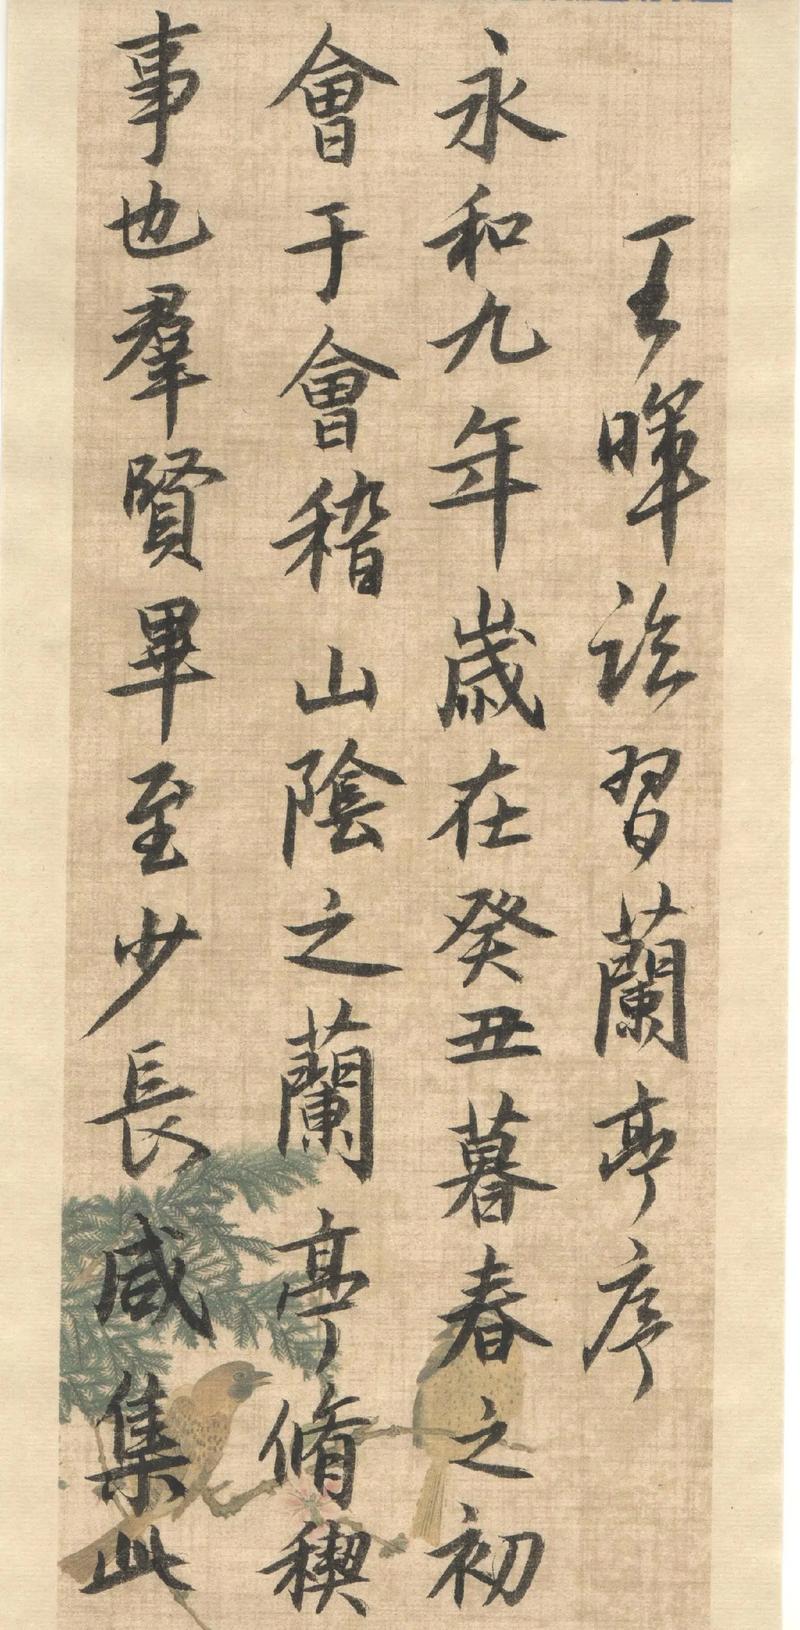 王暉詒習蘭亭序
永和九年歲在癸丑暮春之初
會于會稽山陰之蘭亭脩稧
事也羣賢畢至少長咸集此